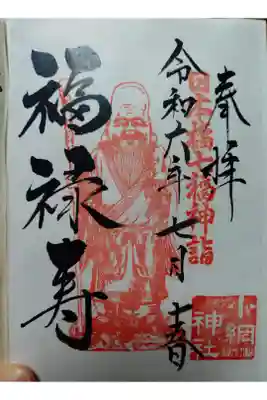 奉拝
日本橋七福神詣
令和六年七月
福禄寿
小網
神社